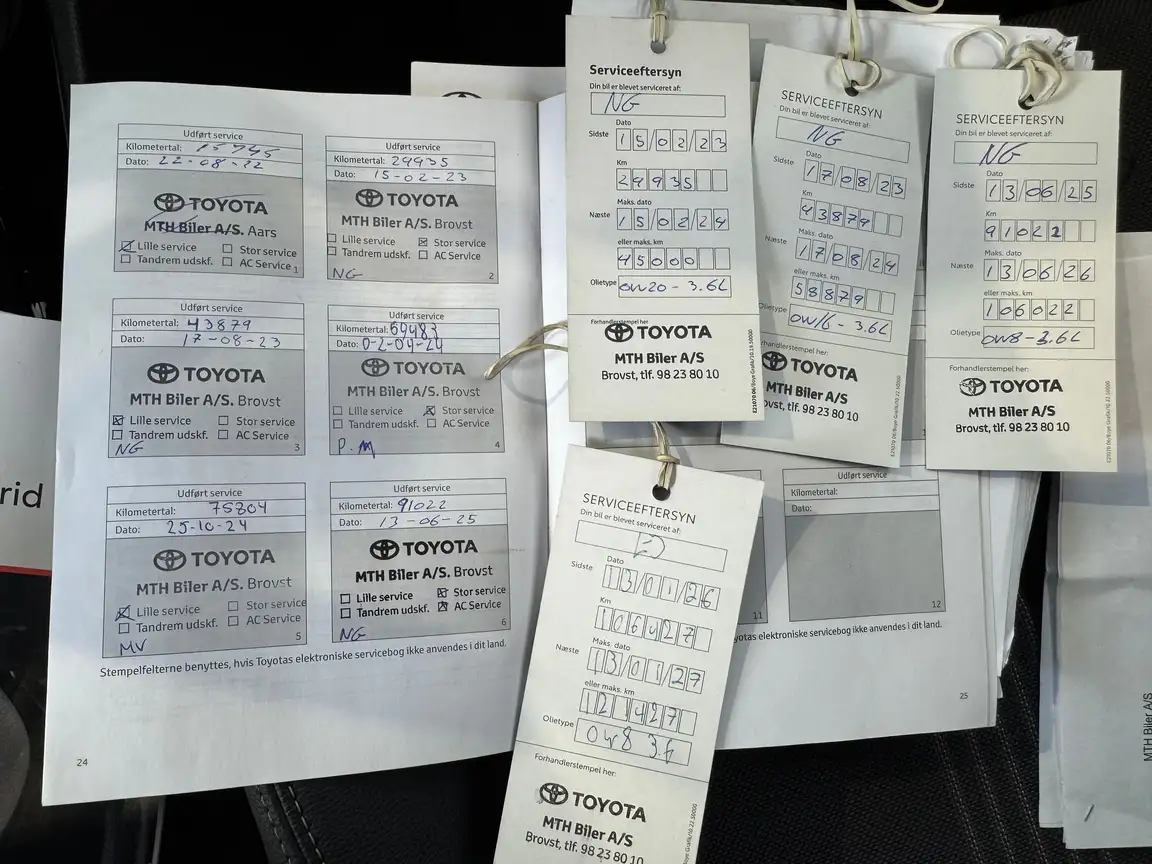 Udført service
Kilometertal: 15745
Dato: 22-08-22
TOYOTA
MTH Biler A/S. Aars
Lille service Stor service
Tandrem udskf. AC Service 1
Udført service
Kilometertal: 29935
Dato: 15-02-23
TOYOTA
MTH Biler A/S. Brovst
Lille service Stor service
Tandrem udskf. AC Service
NG 2
Udført service
Kilometertal: 43879
Dato: 17-08-23
TOYOTA
MTH Biler A/S. Brovst
Lille service Stor service
Tandrem udskf. AC Service
NG 3
Udført service
Kilometertal:
Dato:
TOYOTA
MTH Biler A/S. Brovst
Lille service Stor service
Tandrem udskf. AC Service
P.M 4
Udført service
Kilometertal: 75804
Dato: 25-10-24
TOYOTA
MTH Biler A/S. Brovst
Lille service Stor service
Tandrem udskf. AC Service
MV 5
Udført service
Kilometertal: 91022
Dato: 13-06-25
TOYOTA
MTH Biler A/S. Brovst
Lille service Stor service
Tandrem udskf. AC Service
NG 6
Stempelfelterne benyttes, hvis Toyotas elektroniske servicebog ikke anvendes i dit land.
24
Serviceeftersyn
Din bil er blevet serviceret af:
NG
Dato
Sidste 15/02/23
Km
29935
Maks. dato
Næste 15/02/24
eller maks. km
45000
Olietype 0W20 - 3.6L
Forhandlerstempel her:
TOYOTA
MTH Biler A/S
Brovst, tlf. 98 23 80 10
SERVICEEFTERSYN
Din bil er blevet serviceret af:
NG
Dato
Sidste 17/08/23
Km
43879
Maks. dato
Næste 17/08/24
eller maks. km
58879
Olietype 0W16 - 3.6L
handlerstempel her:
TOYOTA
MTH Biler A/S
ovst, tlf. 98 23 80 10
SERVICEEFTERSYN
Din bil er blevet serviceret af:
NG
Dato
Sidste 13/06/25
Km
91022
Maks. dato
Næste 13/06/26
eller maks. km
106022
Olietype 0W8-3.6L
Forhandlerstempel her:
TOYOTA
MTH Biler A/S
Brovst, tlf. 98 23 80 10
SERVICEEFTERSYN
Din bil er blevet serviceret af:
Dato
Sidste 13/01/26
Km
106427
Maks. dato
Næste 13/01/27
eller maks. km
121427
Olietype 0W8 3.6
Forhandlerstempel her:
TOYOTA
MTH Biler A/S
Brovst, tlf. 98 23 80 10
11
Udført service
Kilometertal:
Dato:
12
yotas elektroniske servicebog ikke anvendes i dit land.
25
rid
MTH Biler A/S